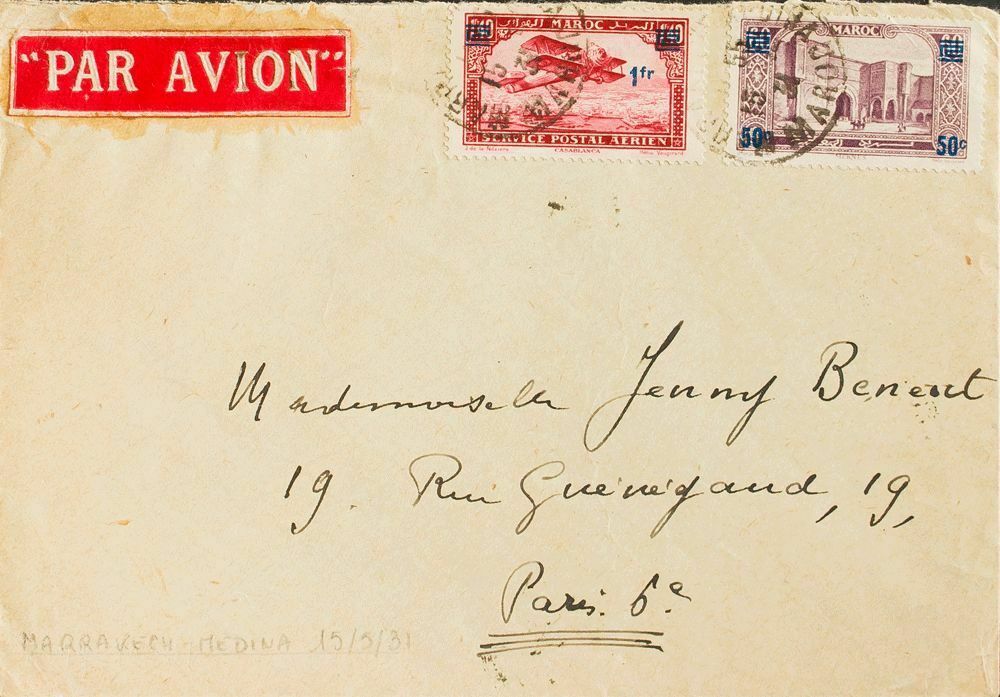 "PAR AVION"
MAROC البريد الهوائي
1fr
SERVICE POSTAL AERIEN
J de la Nézière CASABLANCA Hélio Vaugirard
MAROC
50c 50c
MAROC
Mademoiselle Jenny Benert
19. Rue Guénégaud, 19,
Paris. 6e
MARRAKECH-MEDINA 15/5/31